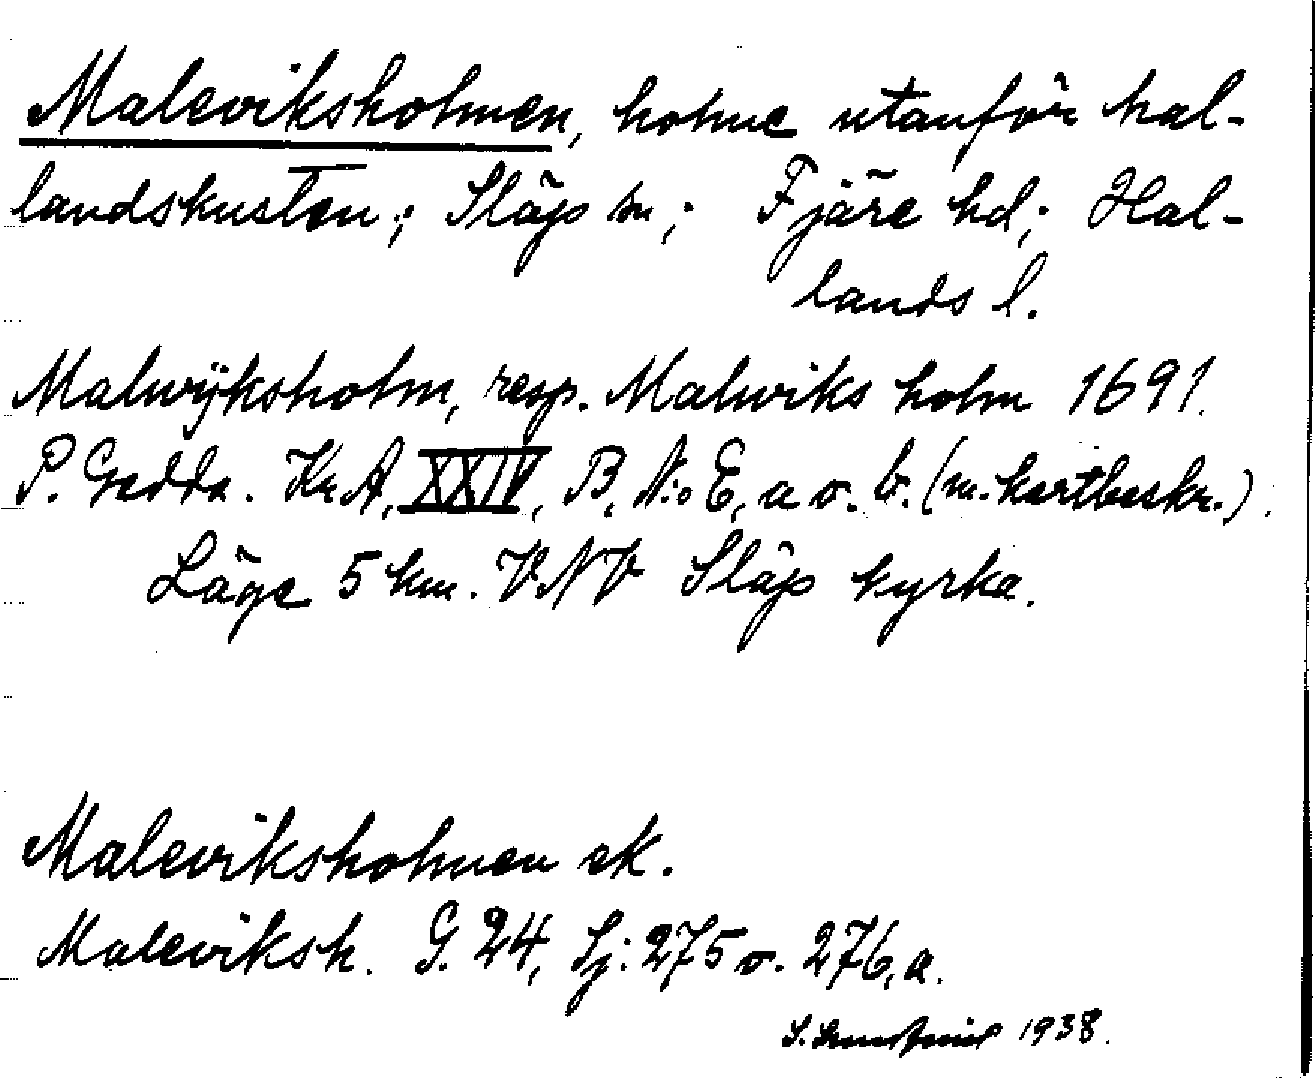 Maleviksholmen, holme utanför hal-
landskusten; Släp sn; Fjäre hd; Hal-
lands l.
Malwijksholm, resp. Malwiks holm 1691.
P. Gedda. Kr.A, XXIV, B, N:o E, a o. b. (m. kartbeskr.).
Läge 5 km. VNV Släp kyrka.
Maleviksholmen ek.
Maleviksh. G. 24, Sj: 275 o. 276, a.
S. 1938.